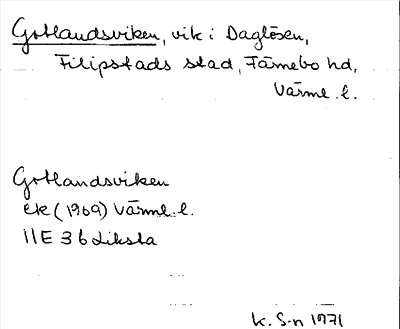 Gotlandsviken, vik i Daglösen,
Filipstads stad, Färnebo hd,
Värml. l.
Gotlandsviken
ek (1969) Värml. l.
11E 3 b Liksta
K. S-n 1971